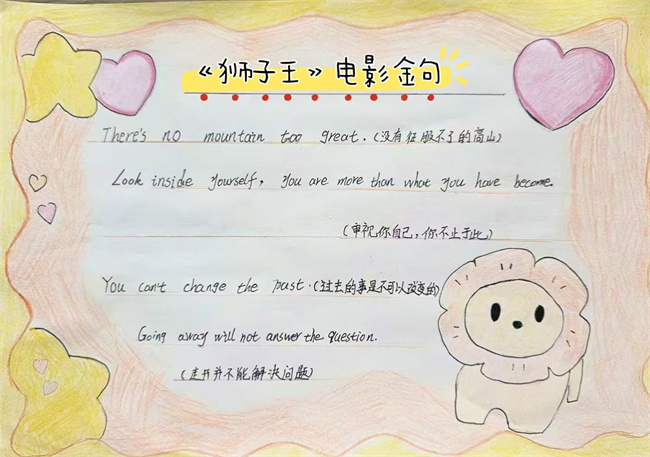 《狮子王》电影金句
There's no mountain too great. (没有征服不了的高山)
Look inside yourself, you are more than what you have become.
(审视你自己，你不止于此)
You can't change the past. (过去的事是不可以改变的)
Going away will not answer the question.
(走开并不能解决问题)